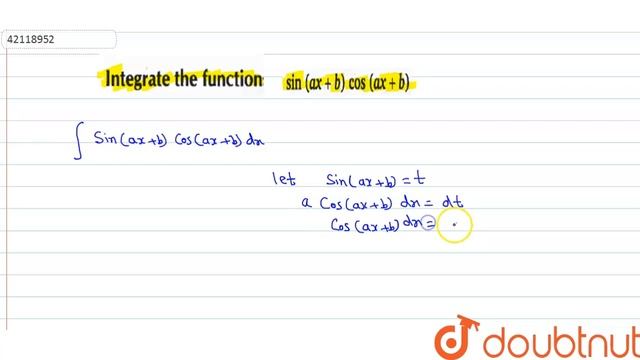 42118952
Integrate the function sin (ax + b) cos (ax + b)
∫ Sin(ax+b) Cos(ax+b) dx
let Sin(ax+b) = t
a Cos(ax+b) dx = dt
Cos(ax+b) dx =
doubtnut